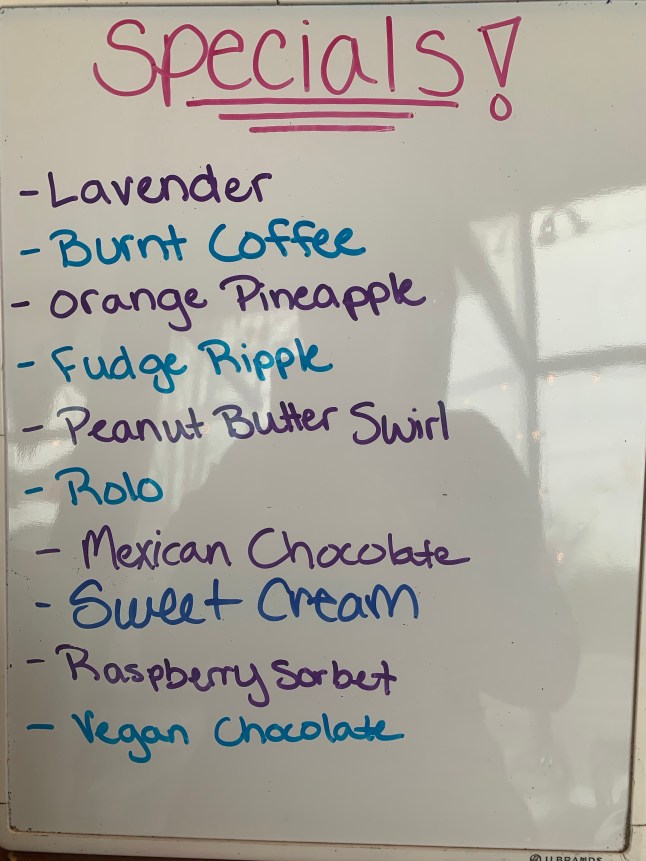 Specials!
- Lavender
- Burnt Coffee
- Orange Pineapple
- Fudge Ripple
- Peanut Butter Swirl
- Rolo
- Mexican Chocolate
- Sweet Cream
- Raspberry Sorbet
- Vegan Chocolate
U BRANDS